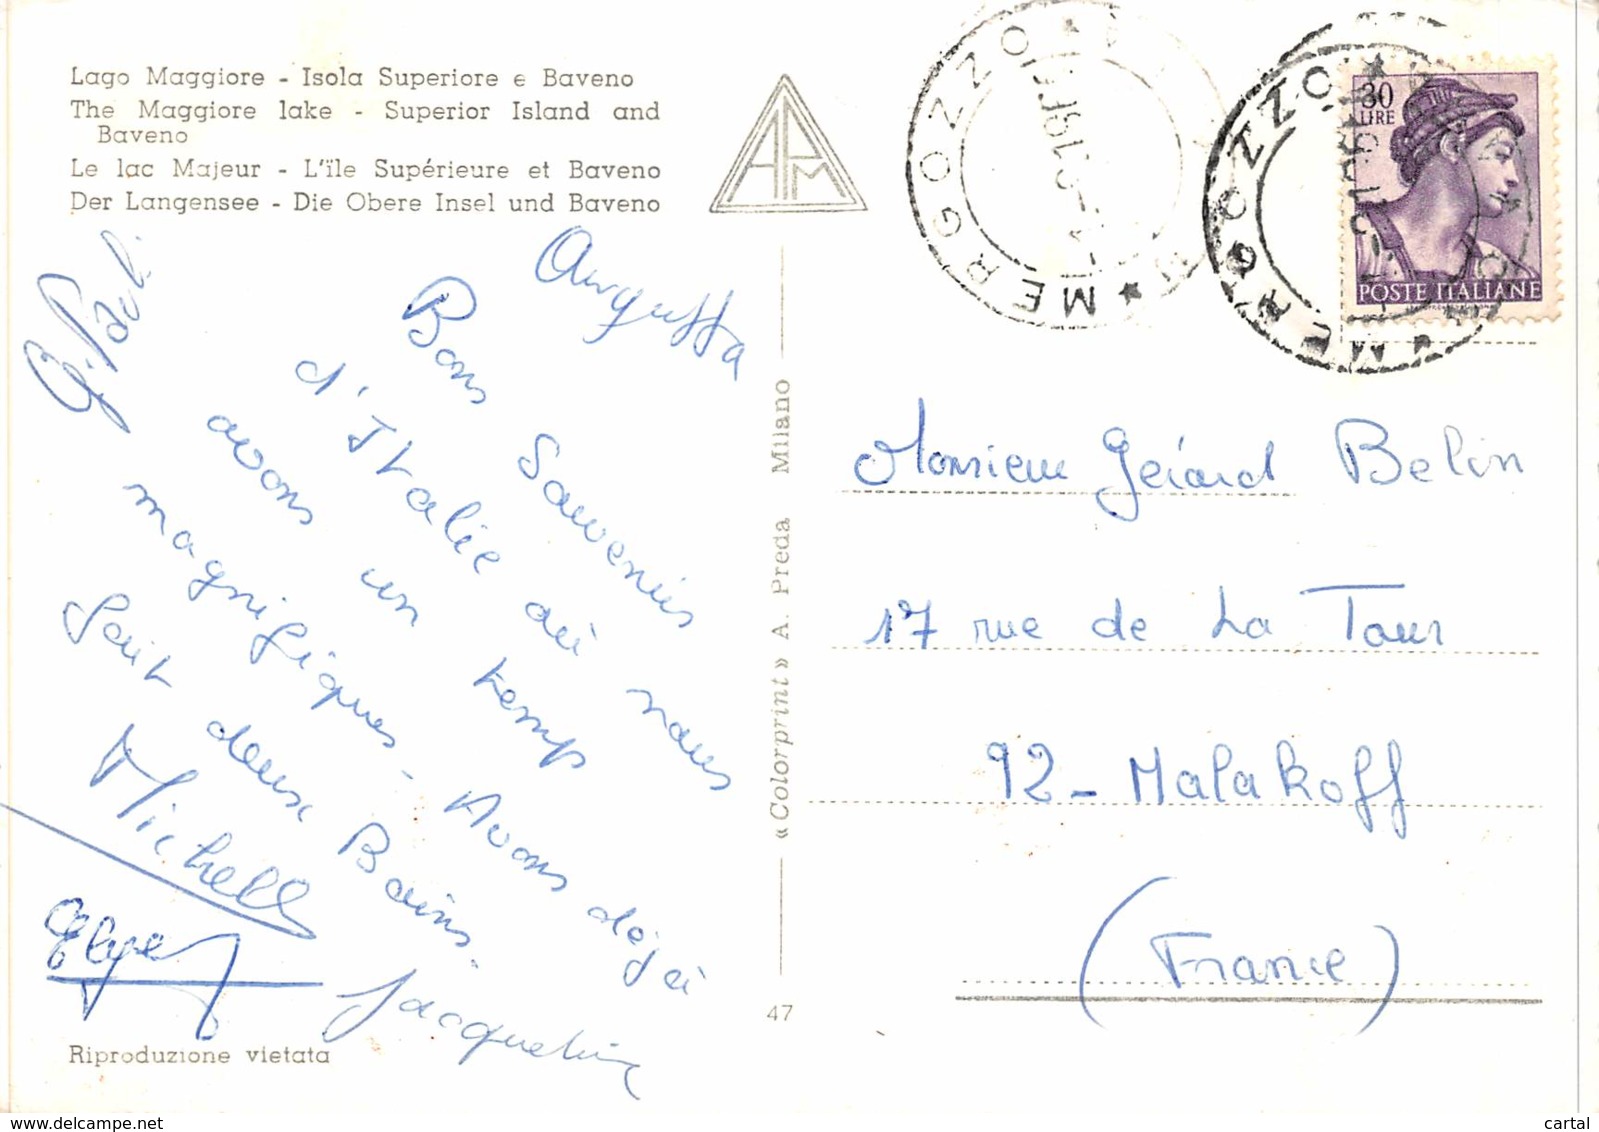 Lago Maggiore - Isola Superiore e Baveno
The Maggiore lake - Superior Island and
Baveno
Le lac Majeur - L'île Supérieure et Baveno
Der Langensee - Die Obere Insel und Baveno
APM
MERGOZZO
MERGOZZO
30
LIRE
POSTE ITALIANE
Augusta
Bons Souvenirs
d'Italie où nous
avons un temps
magnifiques - Avons déjà
fait deux Bains.
Michell
Jacqueline
«Colorprint» A. Preda Milano
47
Riproduzione vietata
Monsieur Gérard Belin
17 rue de La Tour
92 - Malakoff
(France)
cartal
www.delcampe.net